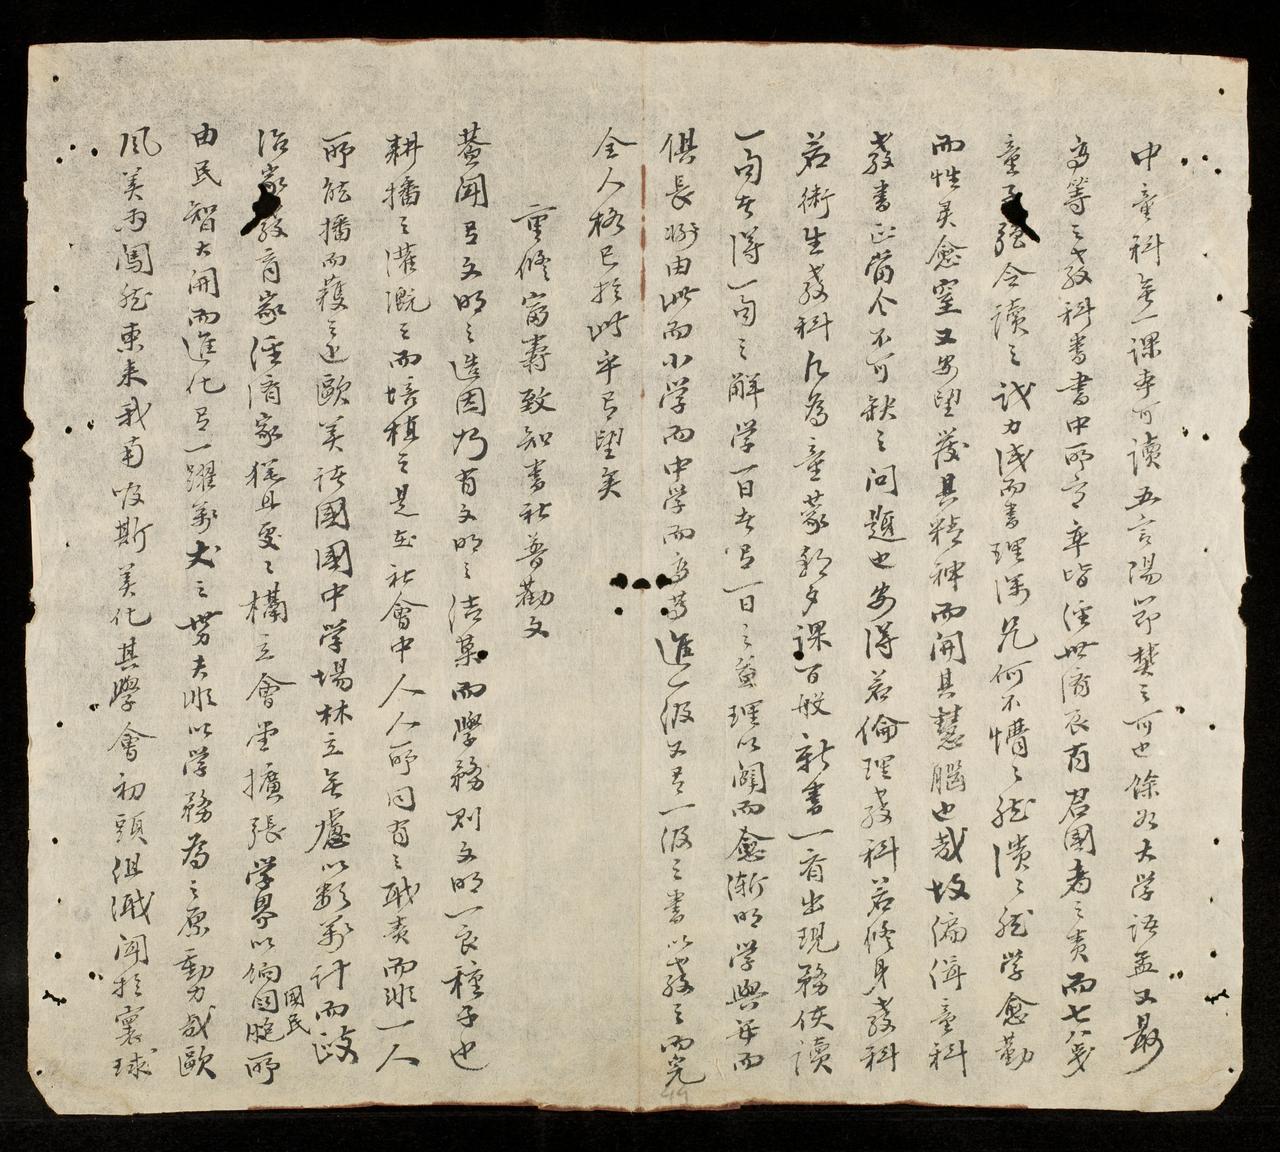 中童科無一課本可讀五言陽節焚之可也餘如大学語孟又最
高等之教科書書中所言率皆經世濟民有君國者之責而七八歲
童子強令讀之識力浅而書理深凡何不懵之然潰之然学愈勤
而性灵愈窒又安望發其精神而開其慧腦也哉故編緝童科
教書正當今不可缺之问題也安得若倫理教科若修身教科
若術生教科以為童蒙朝夕課百般新書一有出現務使讀
一句者得一句之解学一日者有一日之益理以闡而愈漸明学與年而
俱長將由此而小学而中学而高等進一級又有一級之書以教之而完
全人格已於此乎有望矣
重修富壽致知書社普勸文
蓋聞有文明之造因乃有文明之结菓而學務則文明一良種子也
耕播之灌溉之而培植之是在社會中人人所同有之职责而非一人
所能播而穫之也歐美諸國國中学場林立無慮以数萬計而政
治家教育家經濟家猶且孜〻構立會堂擴張学界以餉國民同胞所
由民智大開而進化有一躍萬丈之势夫非以学務為之原動力哉歐
風美雨闖然東来我南吸斯美化其學會初頭但溅闻於寰球